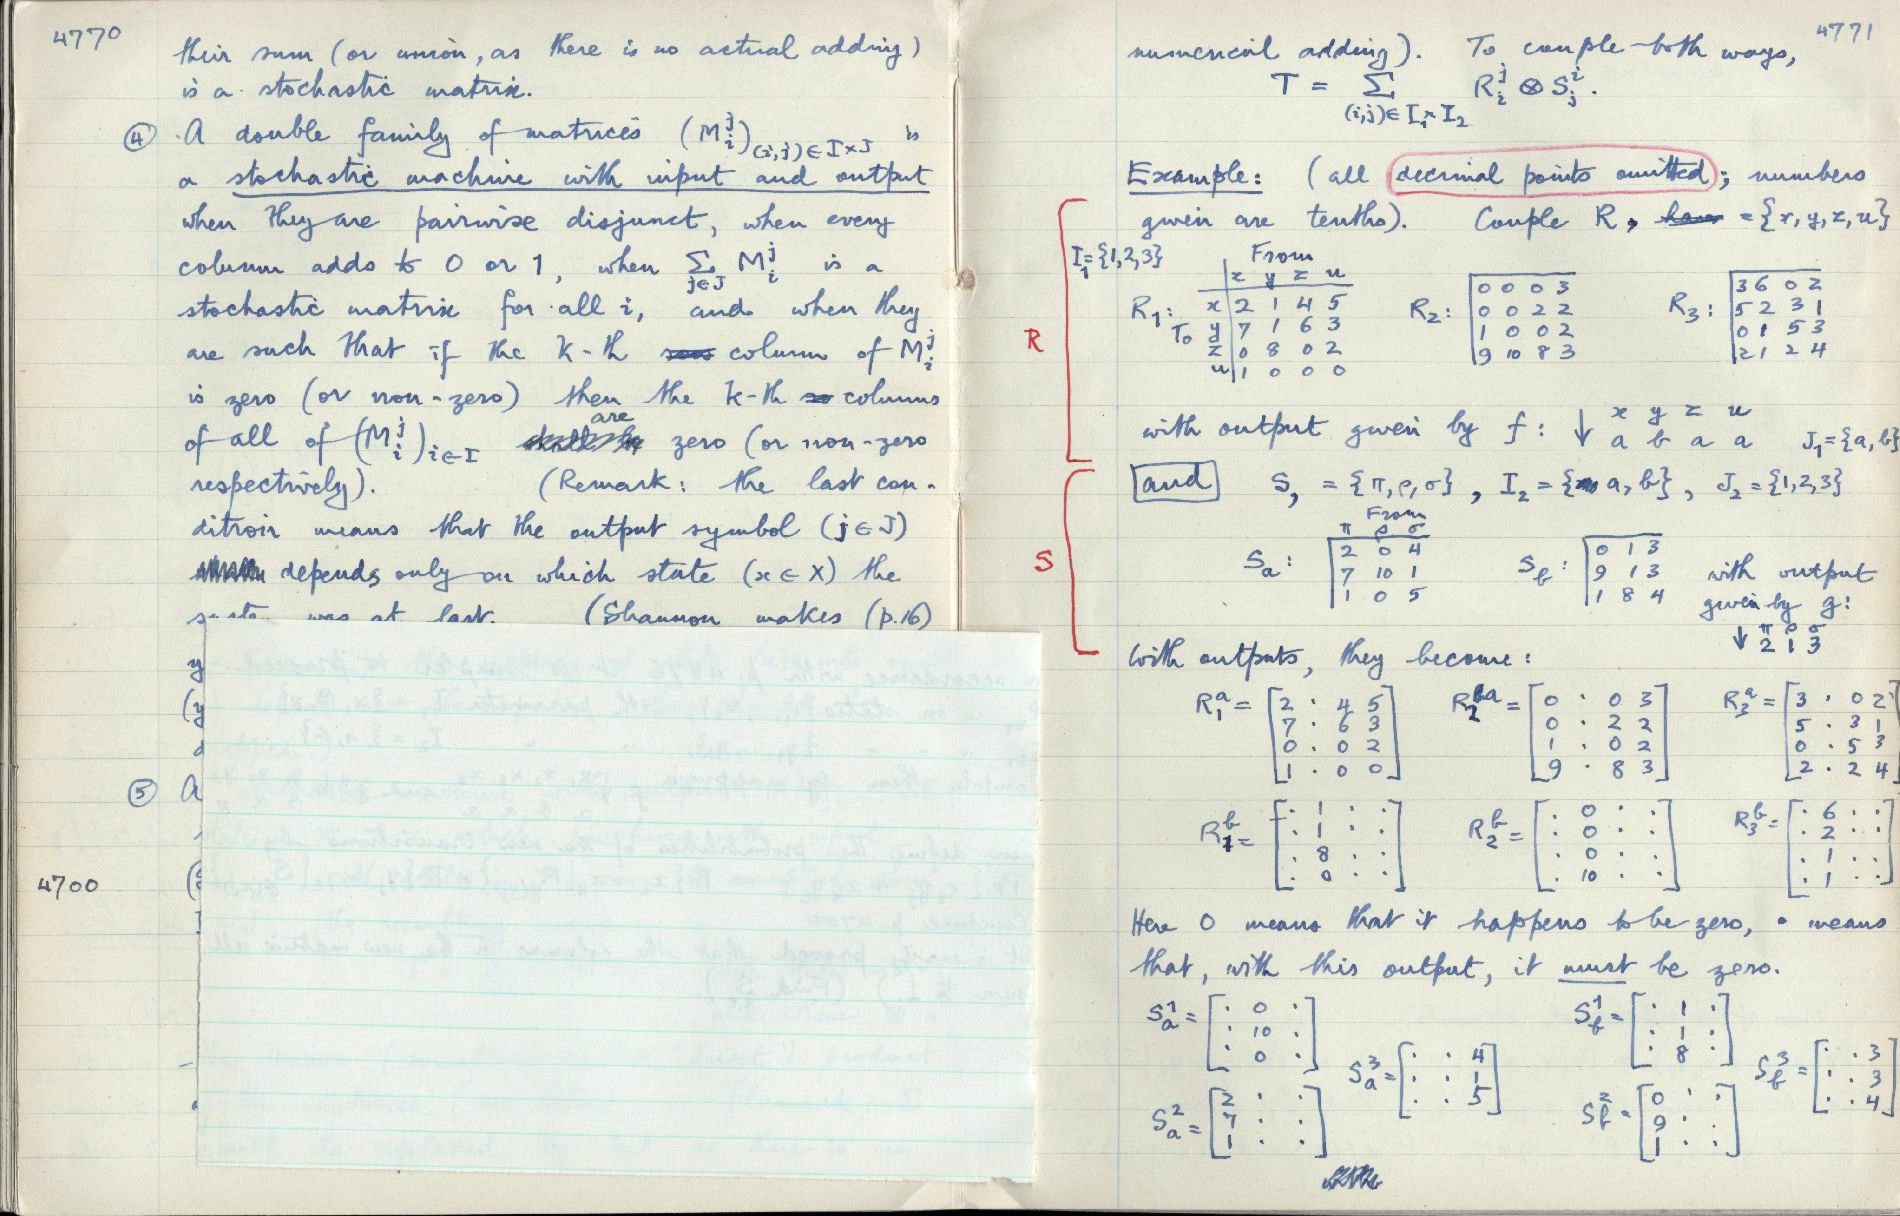 4770
their sum (or union, as there is no actual adding)
is a stochastic matrix.
④ A double family of matrices (M_i^j)_{(i,j)∈I×J} is
a stochastic machine with input and output
when they are pairwise disjunct, when every
column adds to 0 or 1, when ∑_{j∈J} M_i^j is a
stochastic matrix for all i, and when they
are such that if the k-th column of M_i^j
is zero (or non-zero) then the k-th columns
of all of (M_i^j)_{i∈I} are zero (or non-zero
respectively). (Remark: the last con-
dition means that the output symbol (j∈J)
depends only on which state (x∈X) the
system was at last. (Shannon makes (p.16)
⑤ A
4700
4771
numerical adding). To couple both ways,
T = ∑_{(i,j)∈I_1×I_2} R_i^j ⊗ S_j^i.
Example: (all decimal points omitted; numbers
given are tenths). Couple R, = {x, y, z, u}
I_1={1,2,3} From
x y z u
R_1: x 2 1 4 5
To y 7 1 6 3
z 0 8 0 2
u 1 0 0 0
R_2: 0 0 0 3
0 0 2 2
1 0 0 2
9 10 8 3
R_3: 3 6 0 2
5 2 3 1
0 1 5 3
2 1 2 4
R
with output given by f: ↓ x y z u
a b a a J_1={a,b}
and S, = {π,ρ,σ}, I_2={a,b}, J_2={1,2,3}
From
π ρ σ
S_a: 2 0 4
7 10 1
1 0 5
S_b: 0 1 3
9 1 3
1 8 4
with output
given by g:
↓ π ρ σ
2 1 3
S
With outputs, they become:
R_1^a = [2 · 4 5
7 · 6 3
0 · 0 2
1 · 0 0]
R_2^a = [0 · 0 3
0 · 2 2
1 · 0 2
9 · 8 3]
R_3^a = [3 · 0 2
5 · 3 1
0 · 5 3
2 · 2 4]
R_1^b = [· 1 · ·
· 1 · ·
· 8 · ·
· 0 · ·]
R_2^b = [· 0 · ·
· 0 · ·
· 0 · ·
· 10 · ·]
R_3^b = [· 6 · ·
· 2 · ·
· 1 · ·
· 1 · ·]
Here 0 means that it happens to be zero, • means
that, with this output, it must be zero.
S_a^1 = [· 0 ·
· 10 ·
· 0 ·]
S_b^1 = [· 1 ·
· 1 ·
· 8 ·]
S_a^3 = [· · 4
· · 1
· · 5]
S_b^3 = [· · 3
· · 3
· · 4]
S_a^2 = [2 · ·
7 · ·
1 · ·]
S_b^2 = [0 · ·
9 · ·
1 · ·]